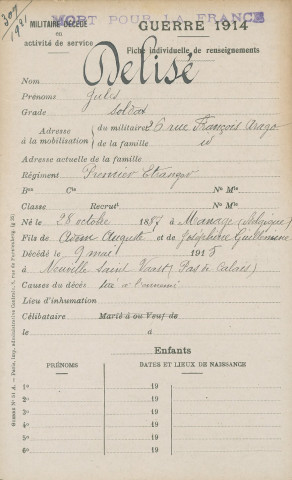 307
1931
MORT POUR LA FRANCE
MILITAIRE DÉCÉDÉ
en
activité de service
GUERRE 1914
Fiche individuelle de renseignements
Nom Delisé
Prénoms Jules
Grade Soldat
Adresse à la mobilisation du militaire 26 rue François Arago
de la famille id
Adresse actuelle de la famille
Régiment Premier Etranger
Bon Cie No Mle
Classe Recrutt No Mle
Né le 28 octobre 1887 à (Belgique)
Fils de Auguste et de Joséphine
Décédé le 9 mai 1915
à Neuville Saint Vaast (Pas de Calais)
Causes du décès tué à l'ennemi
Lieu d'inhumation
Célibataire Marié à ou Veuf de
le à
Enfants
PRÉNOMS DATES ET LIEUX DE NAISSANCE
1o 19
2o 19
3o 19
4o 19
5o 19
6o 19